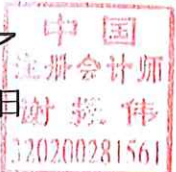 中国
注册会计师
谢振伟
320200281561